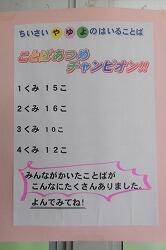 ちいさい やゆよのはいることば
ことばあつめ
チャンピオン!!
1くみ 15こ
2くみ 16こ
3くみ 10こ
4くみ 12こ
みんながかいたことばが
こんなにたくさんありました。
よんでみてね!